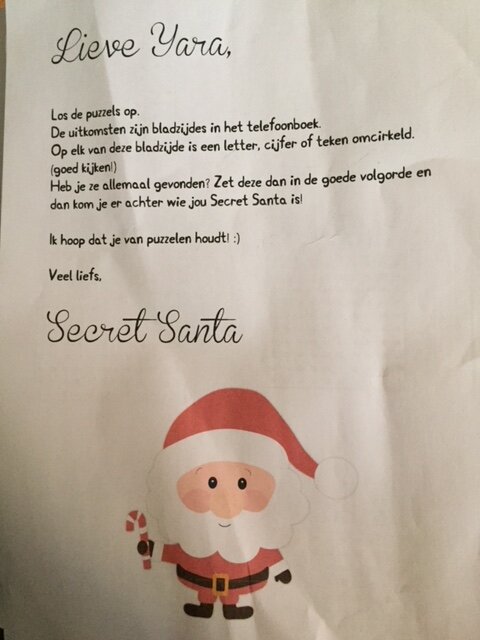 Lieve Yara,
Los de puzzels op.
De uitkomsten zijn bladzijdes in het telefoonboek.
Op elk van deze bladzijde is een letter, cijfer of teken omcirkeld.
(goed kijken!)
Heb je ze allemaal gevonden? Zet deze dan in de goede volgorde en
dan kom je er achter wie jou Secret Santa is!
Ik hoop dat je van puzzelen houdt! :)
Veel liefs,
Secret Santa